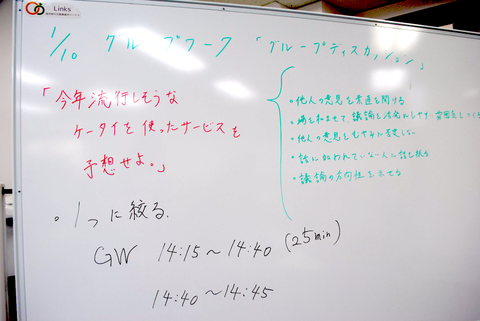 Links
1/10 グループワーク 「グループディスカッション」
「今年流行しそうな
ケータイを使ったサービスを
予想せよ。」
・1つに絞る.
GW 14:15〜14:40 (25min)
14:40〜14:45
・他人の意見を素直に聞ける
・場を和ませて議論を活発にしやすい雰囲気をつくる
・他人の意見をむやみに否定しない
・話に加われていない人に話を振る
・議論の方向性を示せる